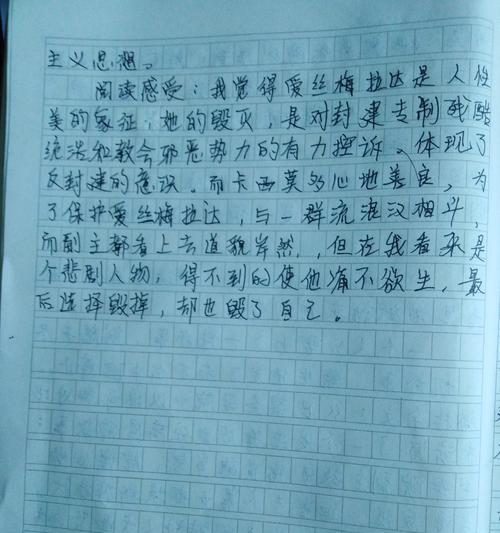 主义思想。
阅读感受：我觉得爱丝梅拉达是人性
美的象征，她的毁灭，是对封建专制残酷
统治和教会邪恶势力的有力控诉。体现了
反封建的意识。而卡西莫多心地善良，为
了保护爱丝梅拉达，与一群流浪汉相斗，
而副主都看上去道貌岸然，但在我看来是
个悲剧人物，得不到的使他痛不欲生，最
后选择毁掉，却也毁了自己。